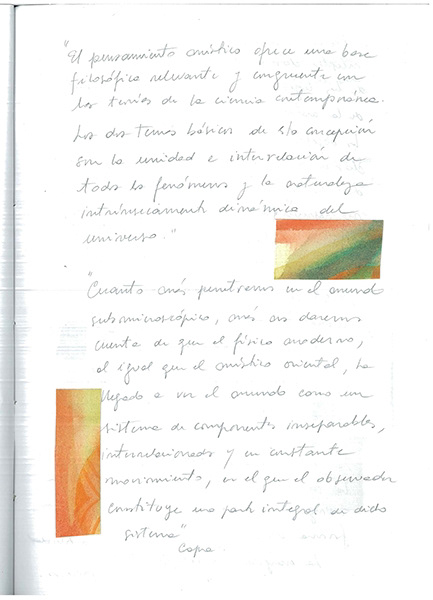 "El pensamiento místico ofrece una base
filosófica relevante y congruente con
las teorías de la ciencia contemporánea.
Los dos temas básicos de esta concepción
son la unidad e interrelación de
todos los fenómenos y la naturaleza
intrínsecamente dinámica del
universo."
"Cuanto más penetremos en el mundo
submicroscópico, más nos daremos
cuenta de que el físico moderno,
al igual que el místico oriental, ha
llegado a ver el mundo como un
sistema de componentes inseparables,
interrelacionados y en constante
movimiento, en el que el observador
constituye una parte integral de dicho
sistema"
Capra.